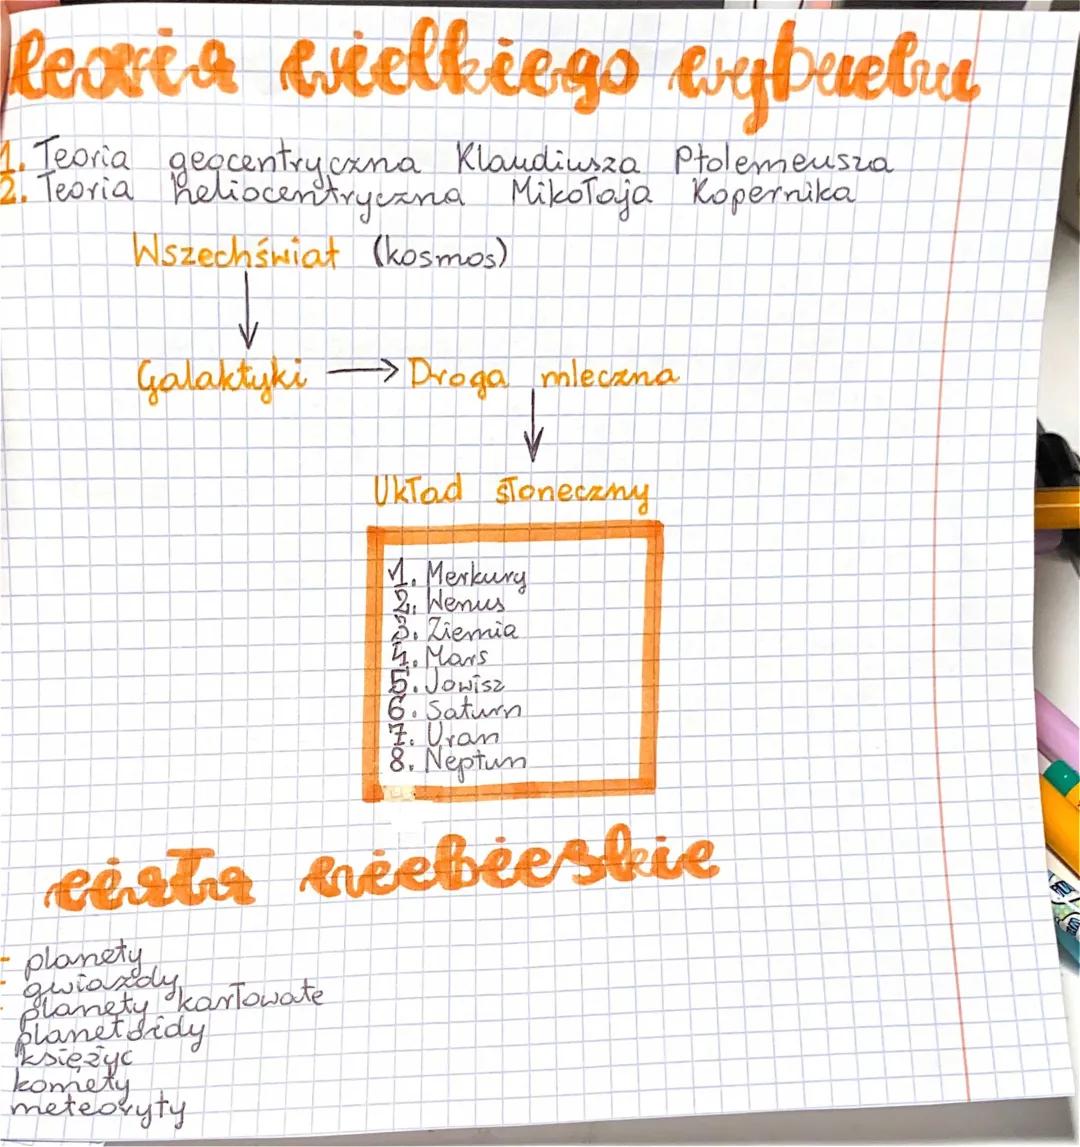 teoria wielkiego wybuchu
1. Teoria geocentryczna Klaudiusza Ptolemeusza
2. Teoria heliocentryczna Mikołaja Kopernika
Wszechświat (kosmos)
Galaktyki → Droga mleczna
Układ słoneczny
1. Merkury
2. Wenus
3. Ziemia
4. Mars
5. Jowisz
6. Saturn
7. Uran
8. Neptun
ciała niebieskie
- planety
- gwiazdy
- planety karłowate
planetoidy
księżyc
komety
meteoryty